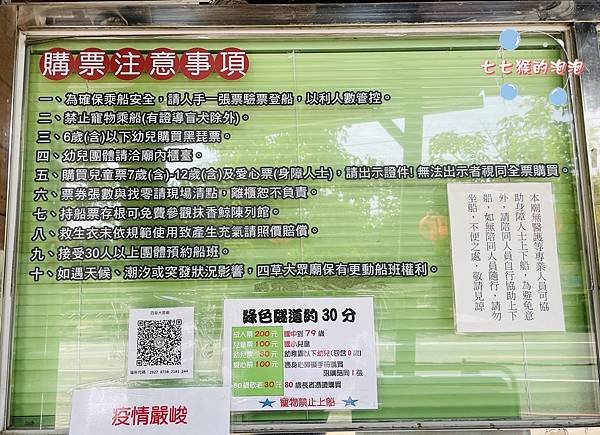 七七猴的泡泡
購票注意事項
一、為確保乘船安全，請人手一張票驗票登船，以利人數管控。
二、禁止寵物乘船(有證導盲犬除外)。
三、6歲(含)以下幼兒購買黑琵票。
四、幼兒團體請洽廟內櫃臺。
五、購買兒童票7歲(含)-12歲(含)及愛心票(身障人士)，請出示證件! 無法出示者視同全票購買。
六、票券張數與找零請現場清點，離櫃恕不負責。
七、持船票存根可免費參觀抹香鯨陳列館。
八、救生衣未依規範使用致產生充氣請照價賠償。
九、接受30人以上團體預約船班。
十、如遇天候、潮汐或突發狀況影響，四草大眾廟保有更動船班權利。
本廟無醫護等專業人員可協
助身障人士上下船，為避免意
外，請陪同人員自行協助上下
船，如無陪同人員隨行，請勿
坐船，不便之處，敬請見諒
四草大眾廟
2927 8738 2181 244
綠色隧道約 30 分
成人票 200 元 國中到 79 歲
兒童票 100 元 國小兒童
幼兒票 30 元 幼稚園以下幼兒(包含 0 歲)
愛心票 100 元 憑身心障礙手冊購買
限購陪同 1 張
80 歲敬老 30 元 80 歲長者憑證購買
寵物禁止上船
疫情嚴峻